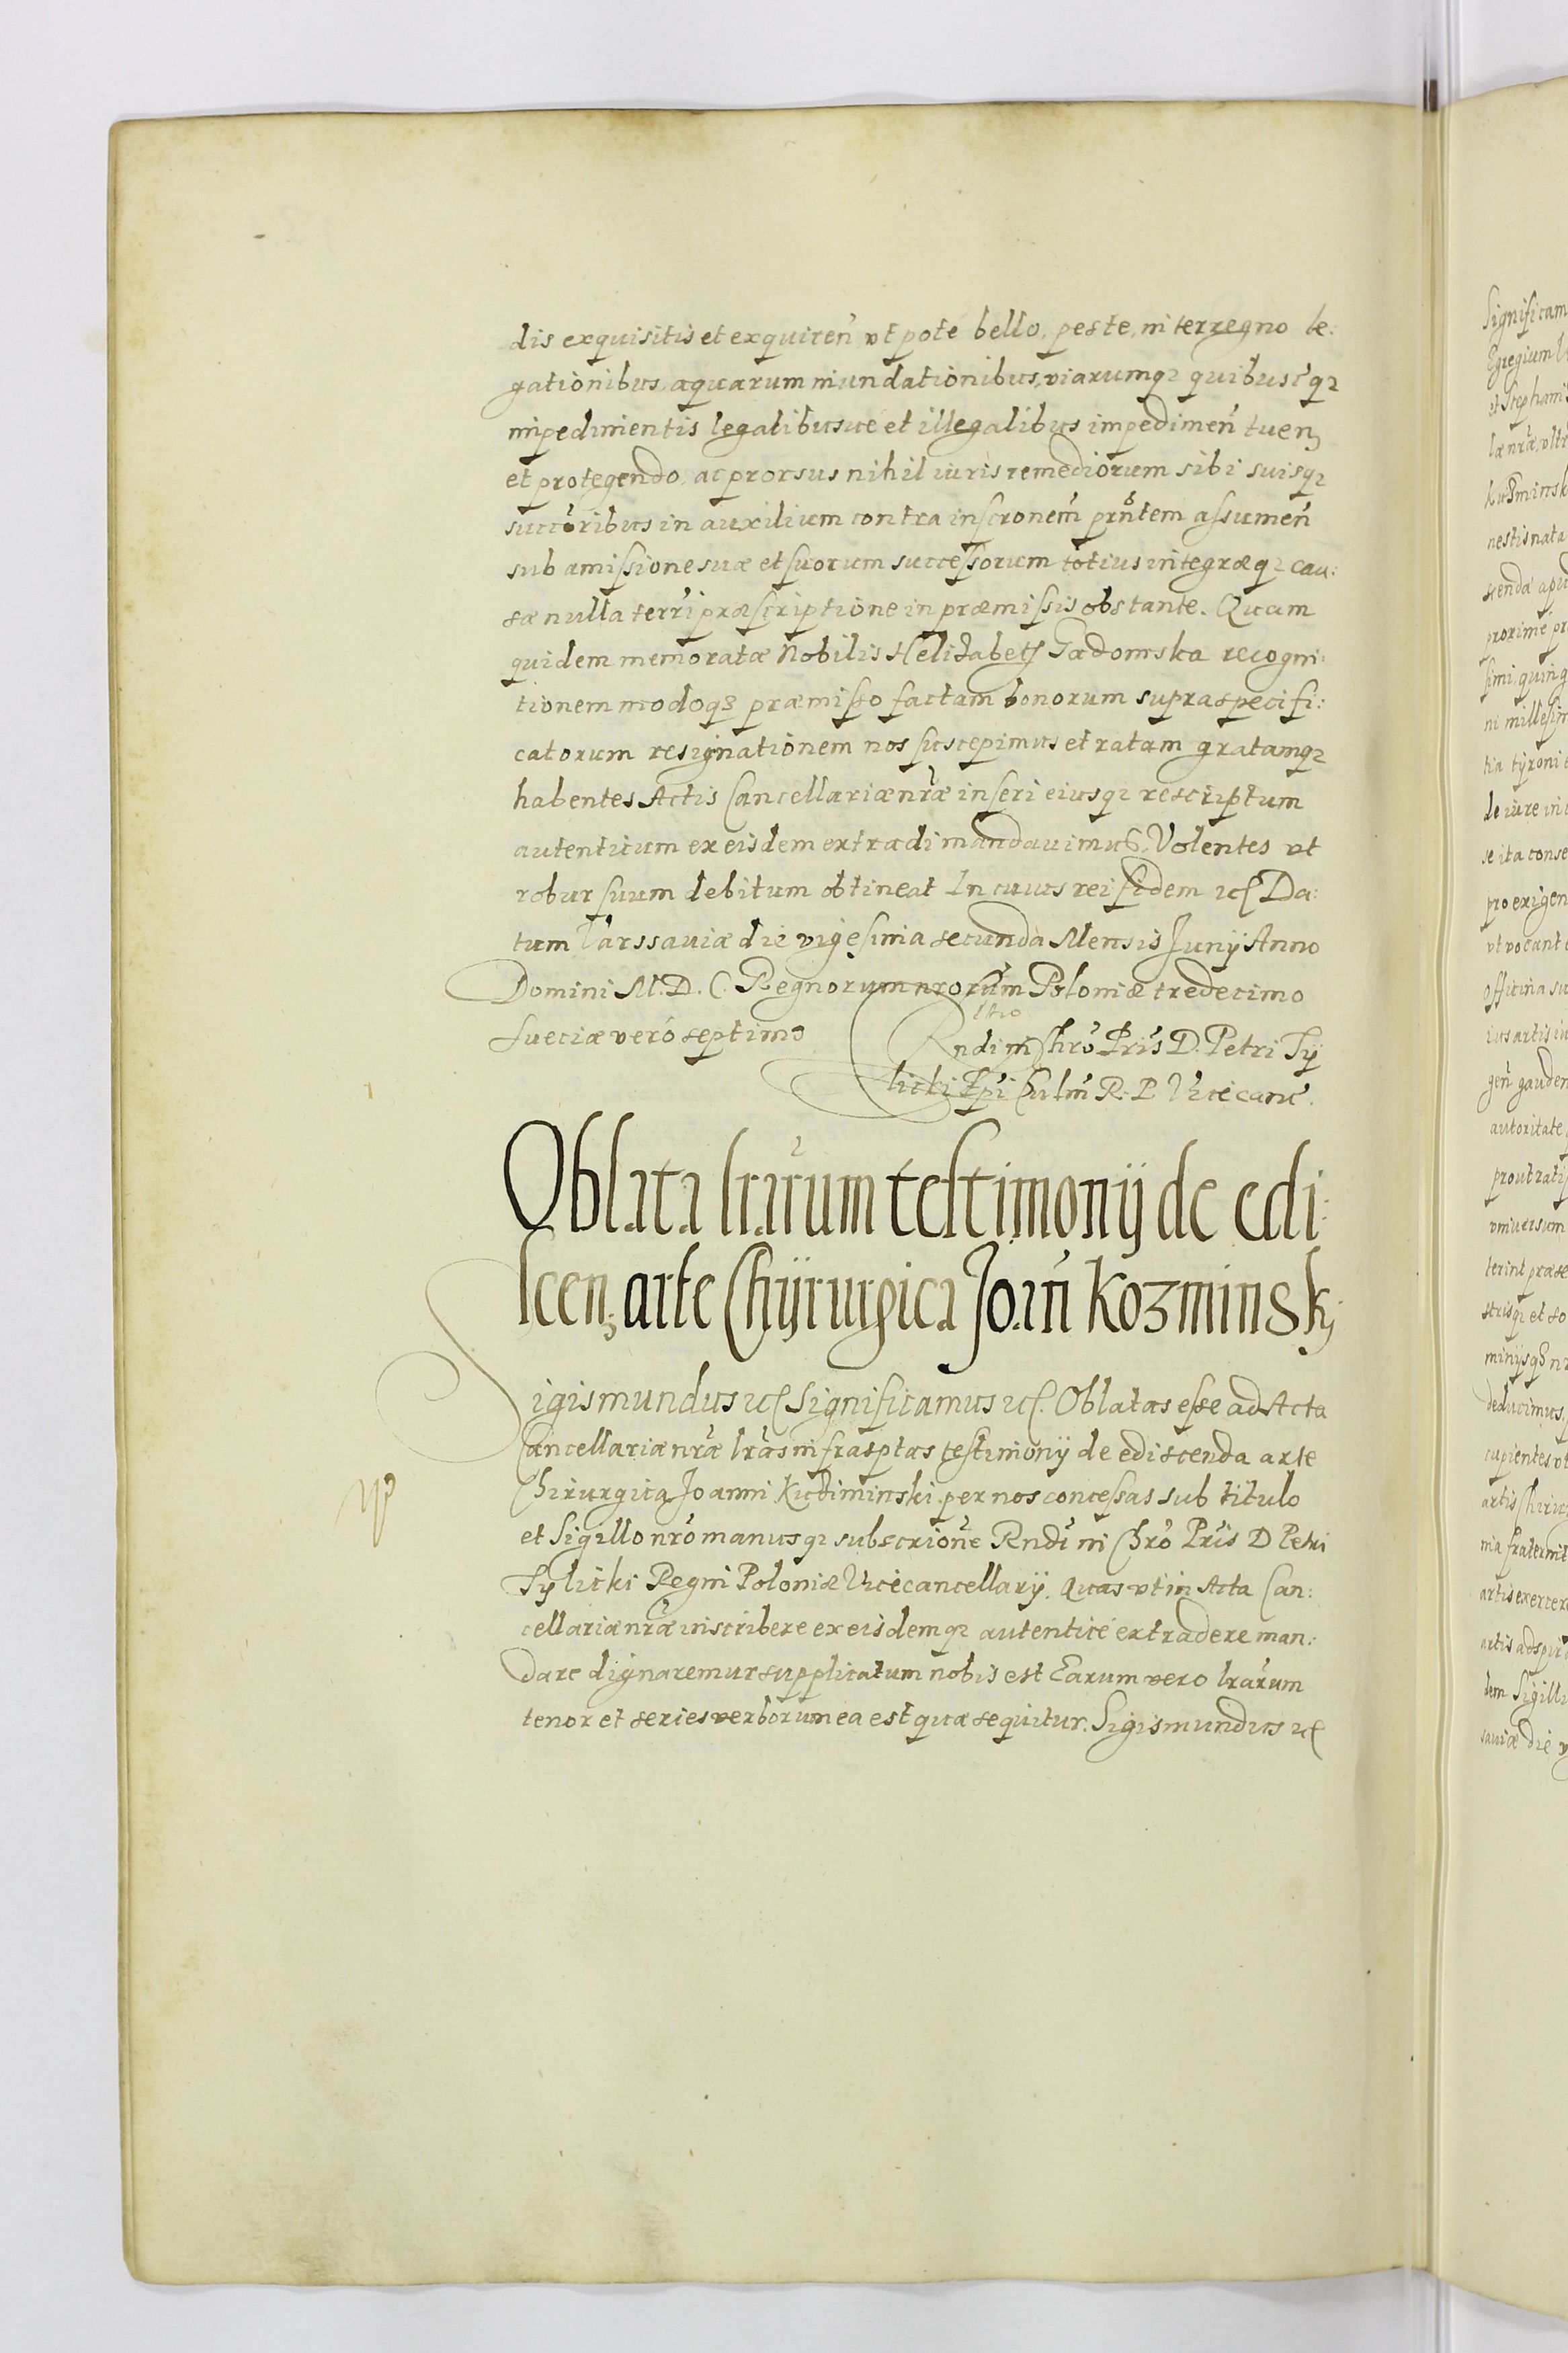 dis exquisitis et exquireñ vt poté bello, peste, interregno le:
gationibus, aquarum inundationibus, viarumq₂ quibuscq₂
impedimentis legalibusue et illegalibus impedimeñ tuenꝫ
et protegendo, ac prorsus nihil iuris remediorum sibi suisq₂
succoribus in auxilium contra inscronem prñtem assumeñ
sub amissione suæ et suorum successorum totius integræq₂ cau:
sæ nulla terri præscriptione in præmissis obstante. Quam
quidem memoratæ Nobilis Helizabeth Gadomska recogni:
tionem modoq₃ præmisso factam bonorum supraspecifi:
catorum resignationem nos suscepimus et ratam gratamq₂
habentes Actis Cancellariæ nræ inseri eiusq₂ rescriptum
autenticum ex eisdem extradi mandauimus, Volentes vt
robur suum debitum obtineat In cuius rei fidem ꝛc Da:
tum Varssauiæ die vigesima secunda Mensis Junij Anno
Domini M.D.C. Regnorum nrorum Poloniæ tredecimo
Sueciæ veró septimo
Rndi in Chro Pris D. Petri Ty
licki Epi Culm R. P. Vicecanc.
Oblata lrarum testimonij de edi:
scenꝫ arte Chÿrurgica Joañ Kozminskj
Sigismundus ꝛc Significamus ꝛc. Oblatas esse ad Acta
Cancellariæ nræ lras infrasptas testimonij de ediscenda arte
Chirurgica Joanni Kuzminski per nos concessas sub titulo
et Sigillo nro manusq₂ subscrione Rndi in Chro Pris D Petri
Tylicki Regni Poloniæ Vicecancellarij. Quas vt in Acta Can:
cellariæ nræ inscribere ex eisdemq₂ autenticé extradere man:
dare dignaremur supplicatum nobis est Earum vero lrarum
tenor et series verborum ea est quæ sequitur. Sigismundus ꝛc
Significam
Egregium
et Stephani
læ nræ, vlt
Kuzminsk
nestis nata
scenda apud
proximé pr
simi quing
ni millesim
tia tyroni
de iure in
se ita conse
pro exigen
vt vocant
officina su
ius artis iu
geñ gauden
autoritate
prout rati
vniuersum
terint præse
strisq₂ et so
minijsq₃ n
deducimus,
cupientes vt
artis Chirur
nia fraternit
artis exercer
artis adspir
tem Sigilli
sauiæ die v